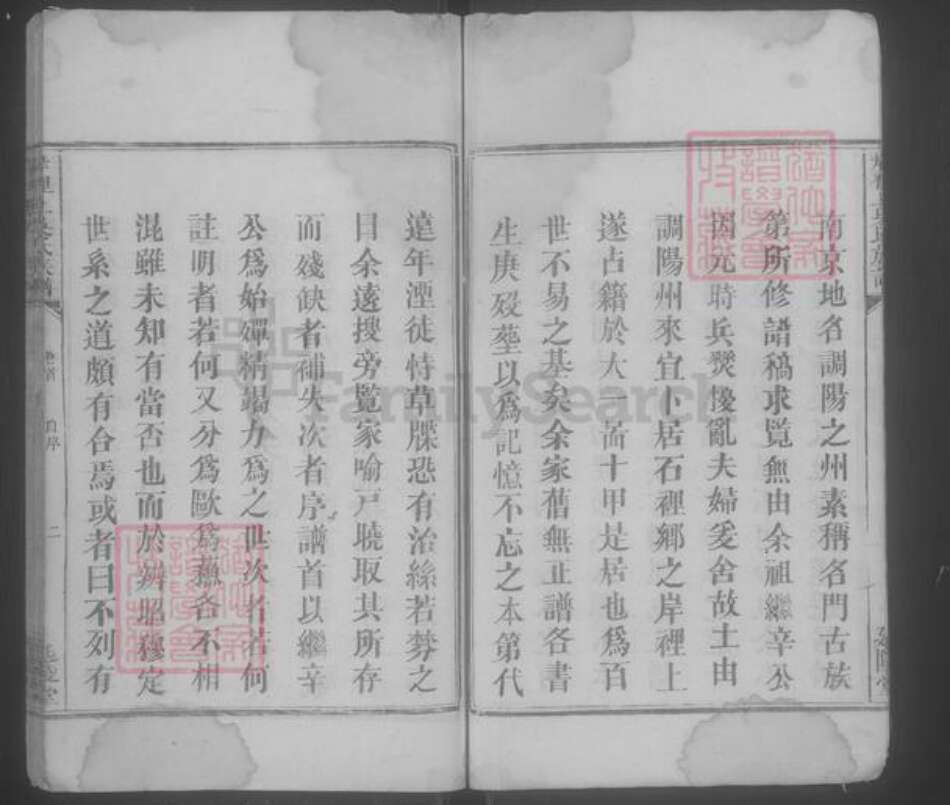 南京地名調陽之州素稱名門古族
第所修譜稿求覧無由余祖繼辛公
因元時兵燹擾亂夫婦爰舍故土由
調陽州來宜卜居石裡鄉之岸裡上
遂占籍於大一啚十甲是居也爲百
世不易之基矣余家舊無正譜各書
生庚歿塟以爲記憶不忘之本第代
遠年湮徒恃草牒恐有治絲若棼之
目余遠搜旁覧家喻戸曉取其所存
而殘缺者補失次者序譜首以繼辛
公爲始殫精竭力爲之世次者若何
註明者若何又分爲歐爲蘇各不相
混雖未知有當否也而於辨昭穆定
世系之道頗有合焉或者曰不列有
自序
二
FamilySearch